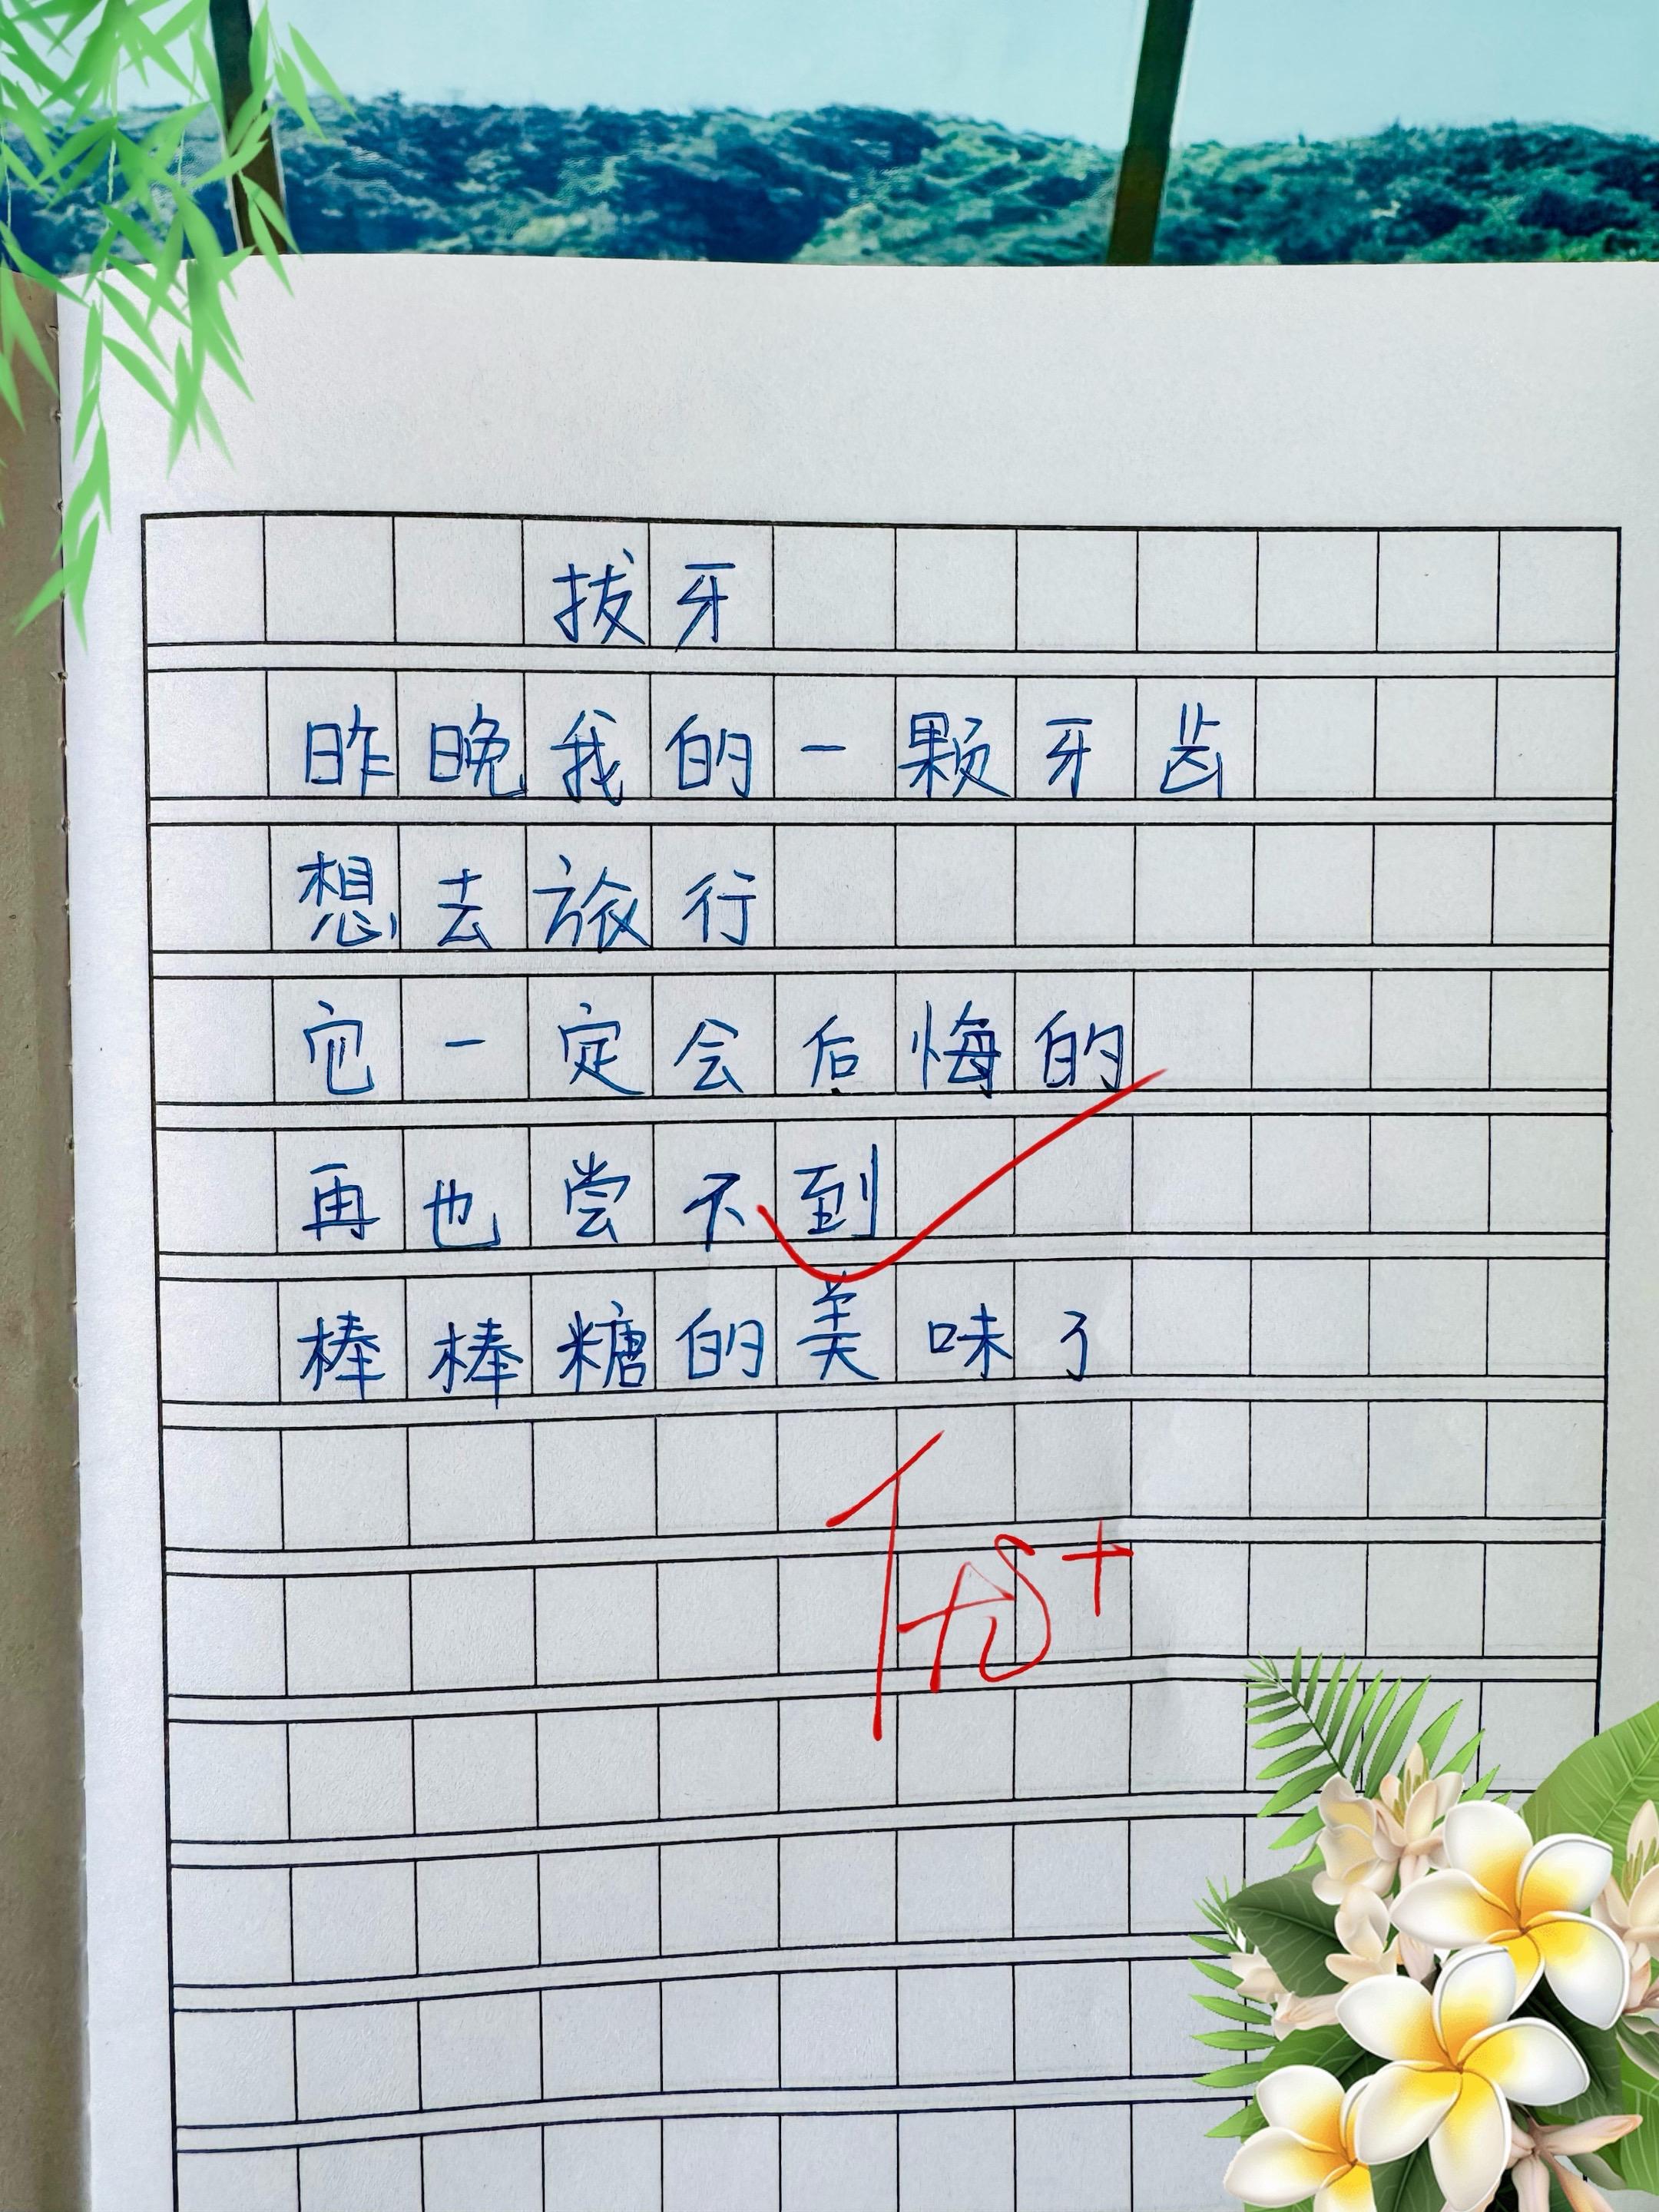 拔牙
昨晚我的一颗牙齿
想去旅行
它一定会后悔的
再也尝不到
棒棒糖的美味了
优+